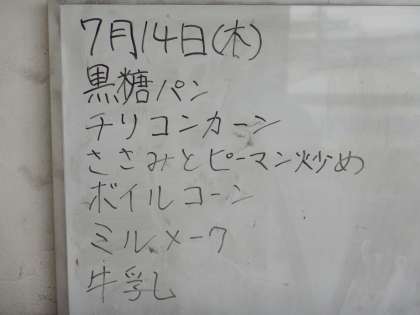 7月14日(木)
黒糖パン
チリコンカーン
ささみとピーマン炒め
ボイルコーン
ミルメーク
牛乳